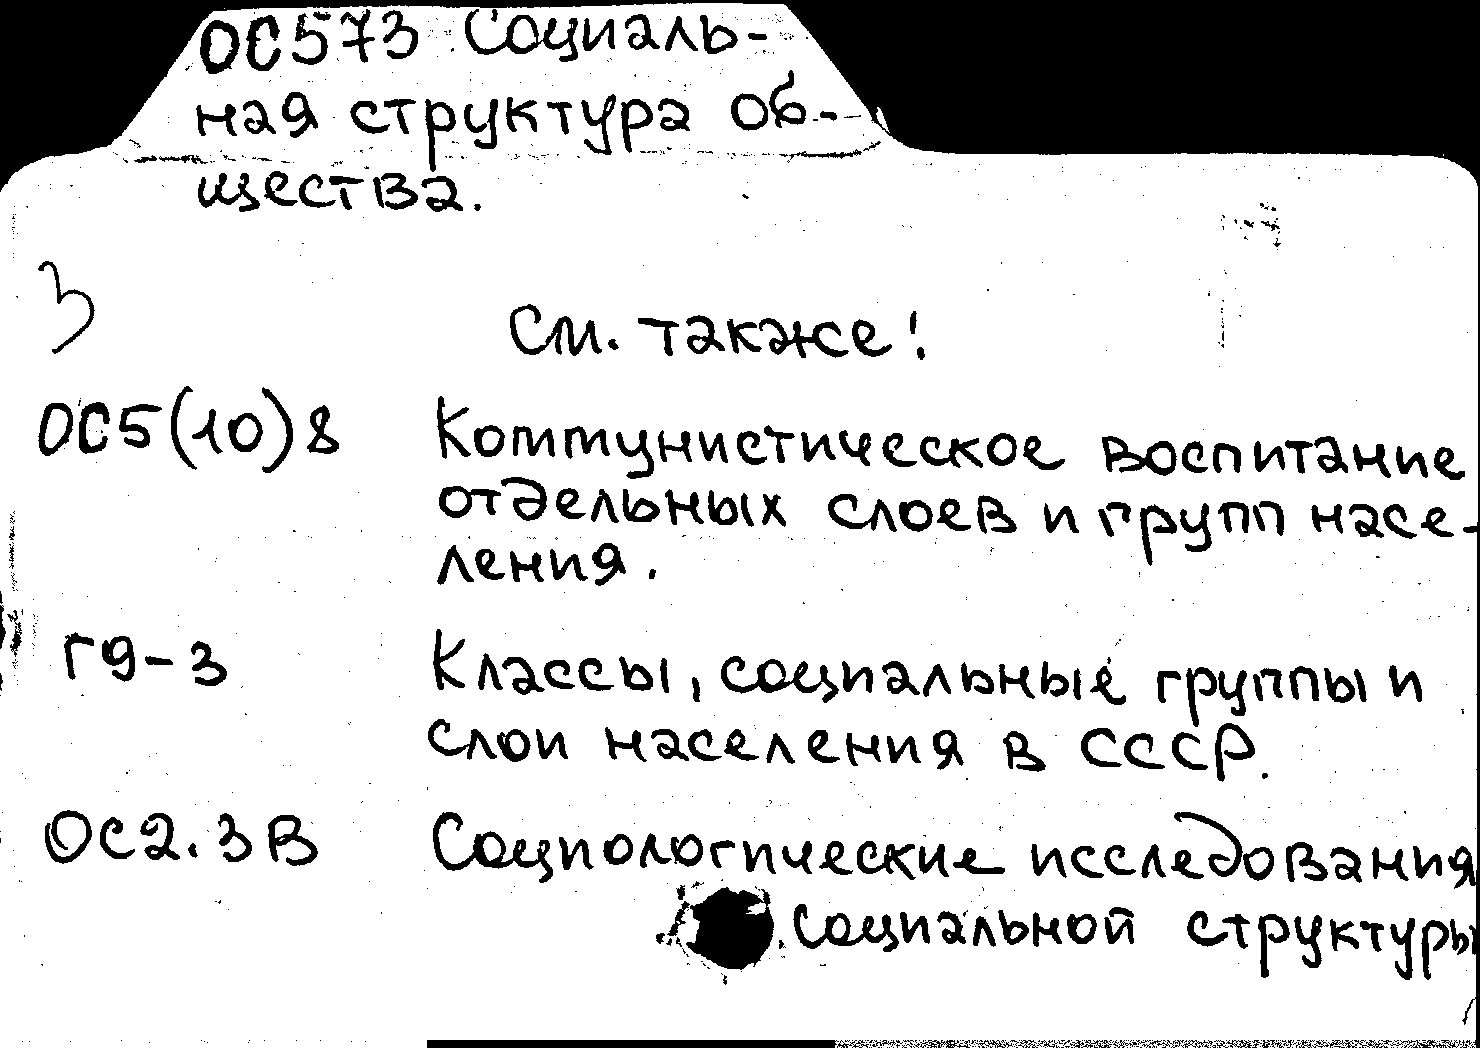 ОС573 Социаль-
ная структура об-
щества.
3
См. также!
ОС5(10)8 Коммунистическое воспитание
отдельных слоев и групп насе-
ления.
Г9-3 Классы, социальные группы и
слои населения в СССР.
ОС2.3В Социологические исследования
социальной структуры